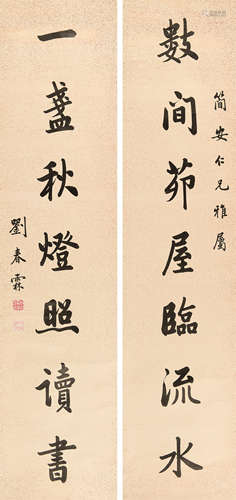 簡安仁兄雅屬
數间茆屋臨流水
一盞秋燈照讀書
劉春霖